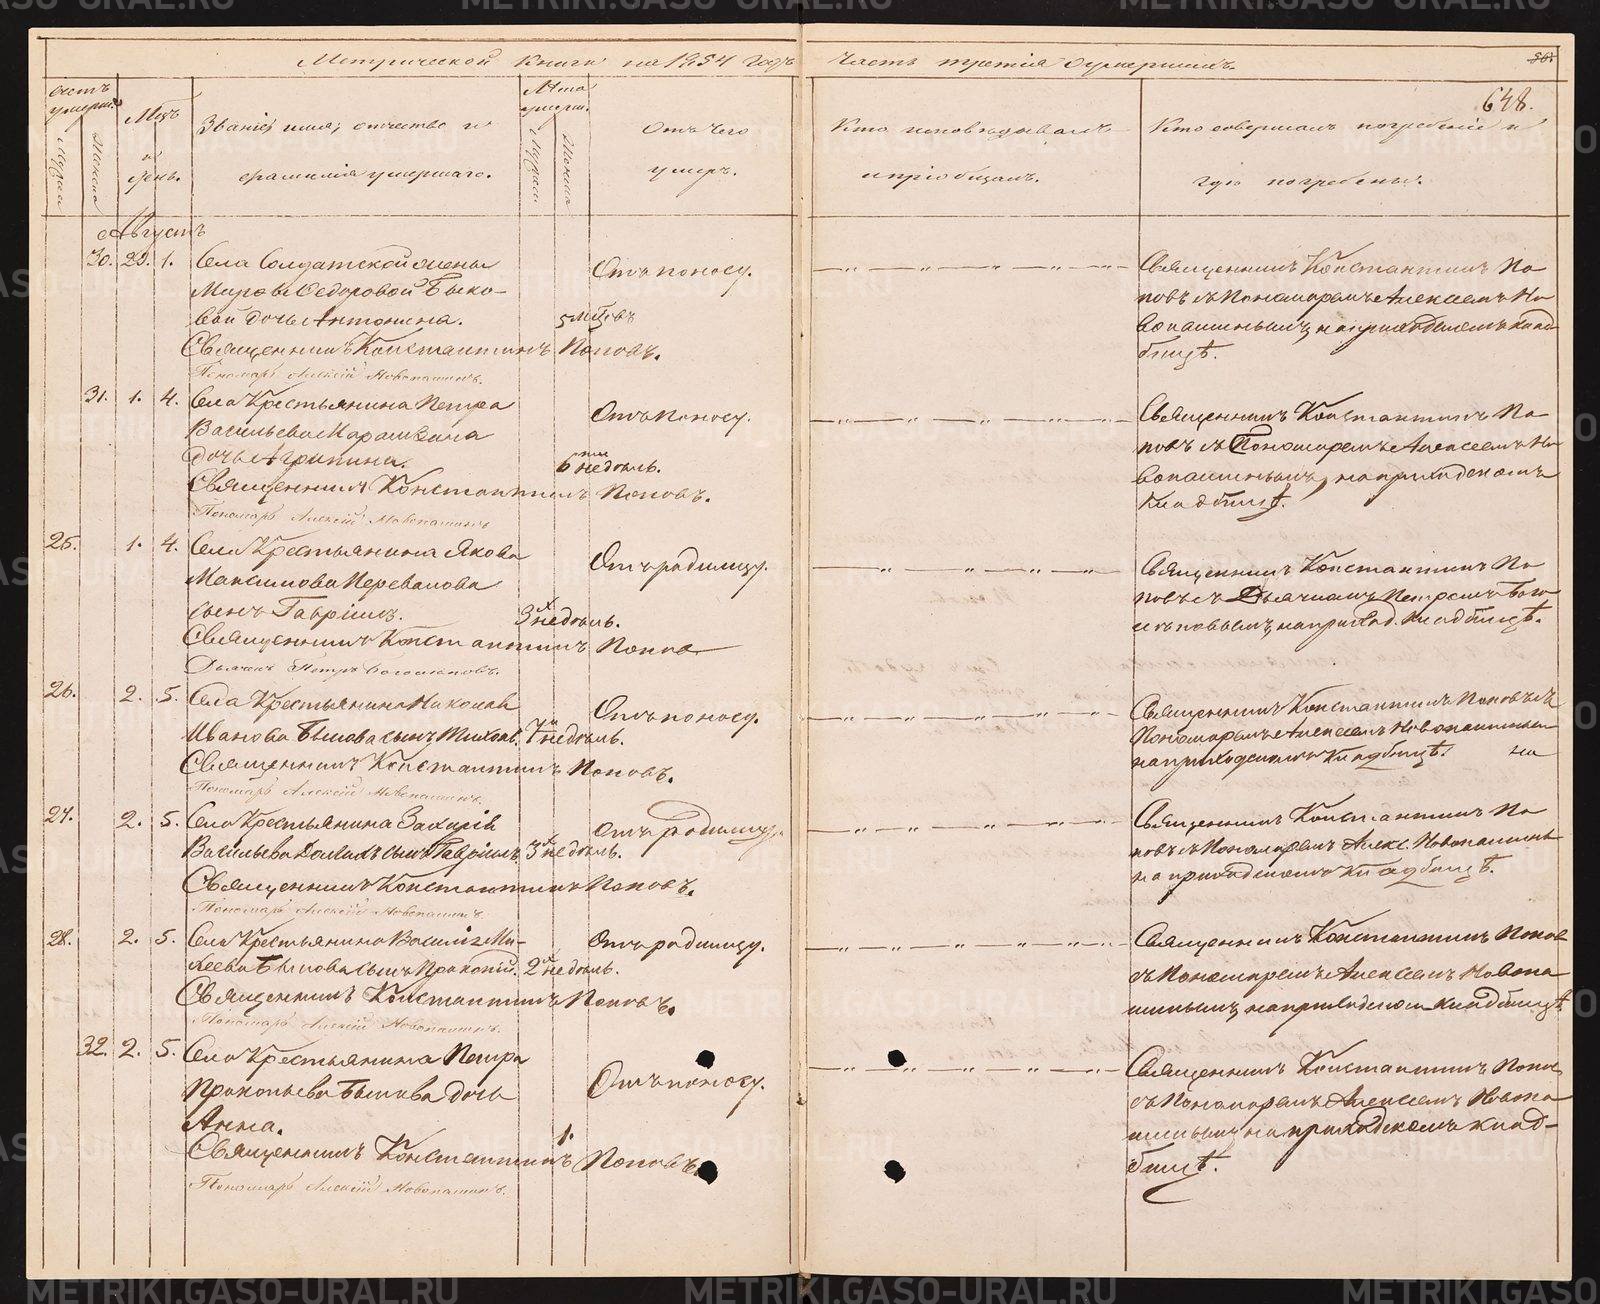 Метрической Книги на 1854 годъ
Часть третія о умершихъ.
648.
Счетъ умерш.
Мужеска
Женска
Мѣсъ и день.
Званіе, имя, отчество и
фамилія умершаго.
Лѣта умерш.
Мужеска
Женска
Отъ чего
умеръ.
Кто исповѣдывалъ
и пріобщалъ.
Кто совершалъ погребеніе и
гдѣ погребены.
Августъ
30. 1. Села Солдатской жены
Ѳедоровой Быко-
вой дочь Антонина.
5 мѣсъ
Отъ поносу.
Священникъ Константинъ Поповъ.
Пономарь Алексій Новопашинъ.
Священникъ Константинъ По
повъ съ Пономаремъ Алексеемъ Но
вопашинымъ, на приходскомъ клад
бищѣ.
31. 1. 4. Села Крестьянина Петра
Васильева
дочь Агрипина.
6 недѣль.
Отъ поносу.
Священникъ Константинъ Поповъ.
Пономарь Алексій Новопашинъ
Священникъ Константинъ По
повъ съ Пономаремъ Алексеемъ Но
вопашинымъ, на приходскомъ
Кладбищѣ.
25. 1. 4. Села Крестьянина Якова
Максимова Перевалова
сынъ Гавріилъ.
3 недѣль.
Отъ родимцу.
Священникъ Константинъ Поповъ
Дьячекъ Петръ Богомоловъ.
Священникъ Константинъ По
повъ съ Дьячкомъ Петромъ
на приход. Кладбищѣ.
26. 2. 5. Села Крестьянина Николая
Иванова Быкова сынъ Тихонъ. 7 недѣль.
Отъ поносу.
Священникъ Константинъ Поповъ.
Пономарь Алексій Новопашинъ.
Священникъ Константинъ Поповъ съ
Пономаремъ Алексеемъ Новопашинымъ
на приходскомъ Кладбищѣ.
27. 2. 5. Села Крестьянина Захарія
Васильева сынъ Гавріилъ. 3 недѣль.
Отъ родимцу
Священникъ Константинъ Поповъ.
Пономарь Алексій Новопашинъ.
Священникъ Константинъ По
повъ съ Пономаремъ Алекс. Новопашинымъ
на приходскомъ Кладбищѣ.
28. 2. 5. Села Крестьянина Василія Ми-
хеева Быкова сынъ Прокопій. 2 недѣль.
Отъ родимцу.
Священникъ Константинъ Поповъ.
Пономарь Алексій Новопашинъ.
Священникъ Константинъ Попов
съ Пономаремъ Алексеемъ Новопа
шинымъ, на приходскомъ кладбищѣ
32. 2. 5. Села Крестьянина Петра
Прокопьева Быкова дочь
Анна.
1.
Отъ поносу.
Священникъ Константинъ Поповъ.
Пономарь Алексій Новопашинъ.
Священникъ Константинъ Попов
съ Пономаремъ Алексеемъ Новопа
шинымъ на приходскомъ клад-
бищѣ.
METRIKI.GASO-URAL.RU